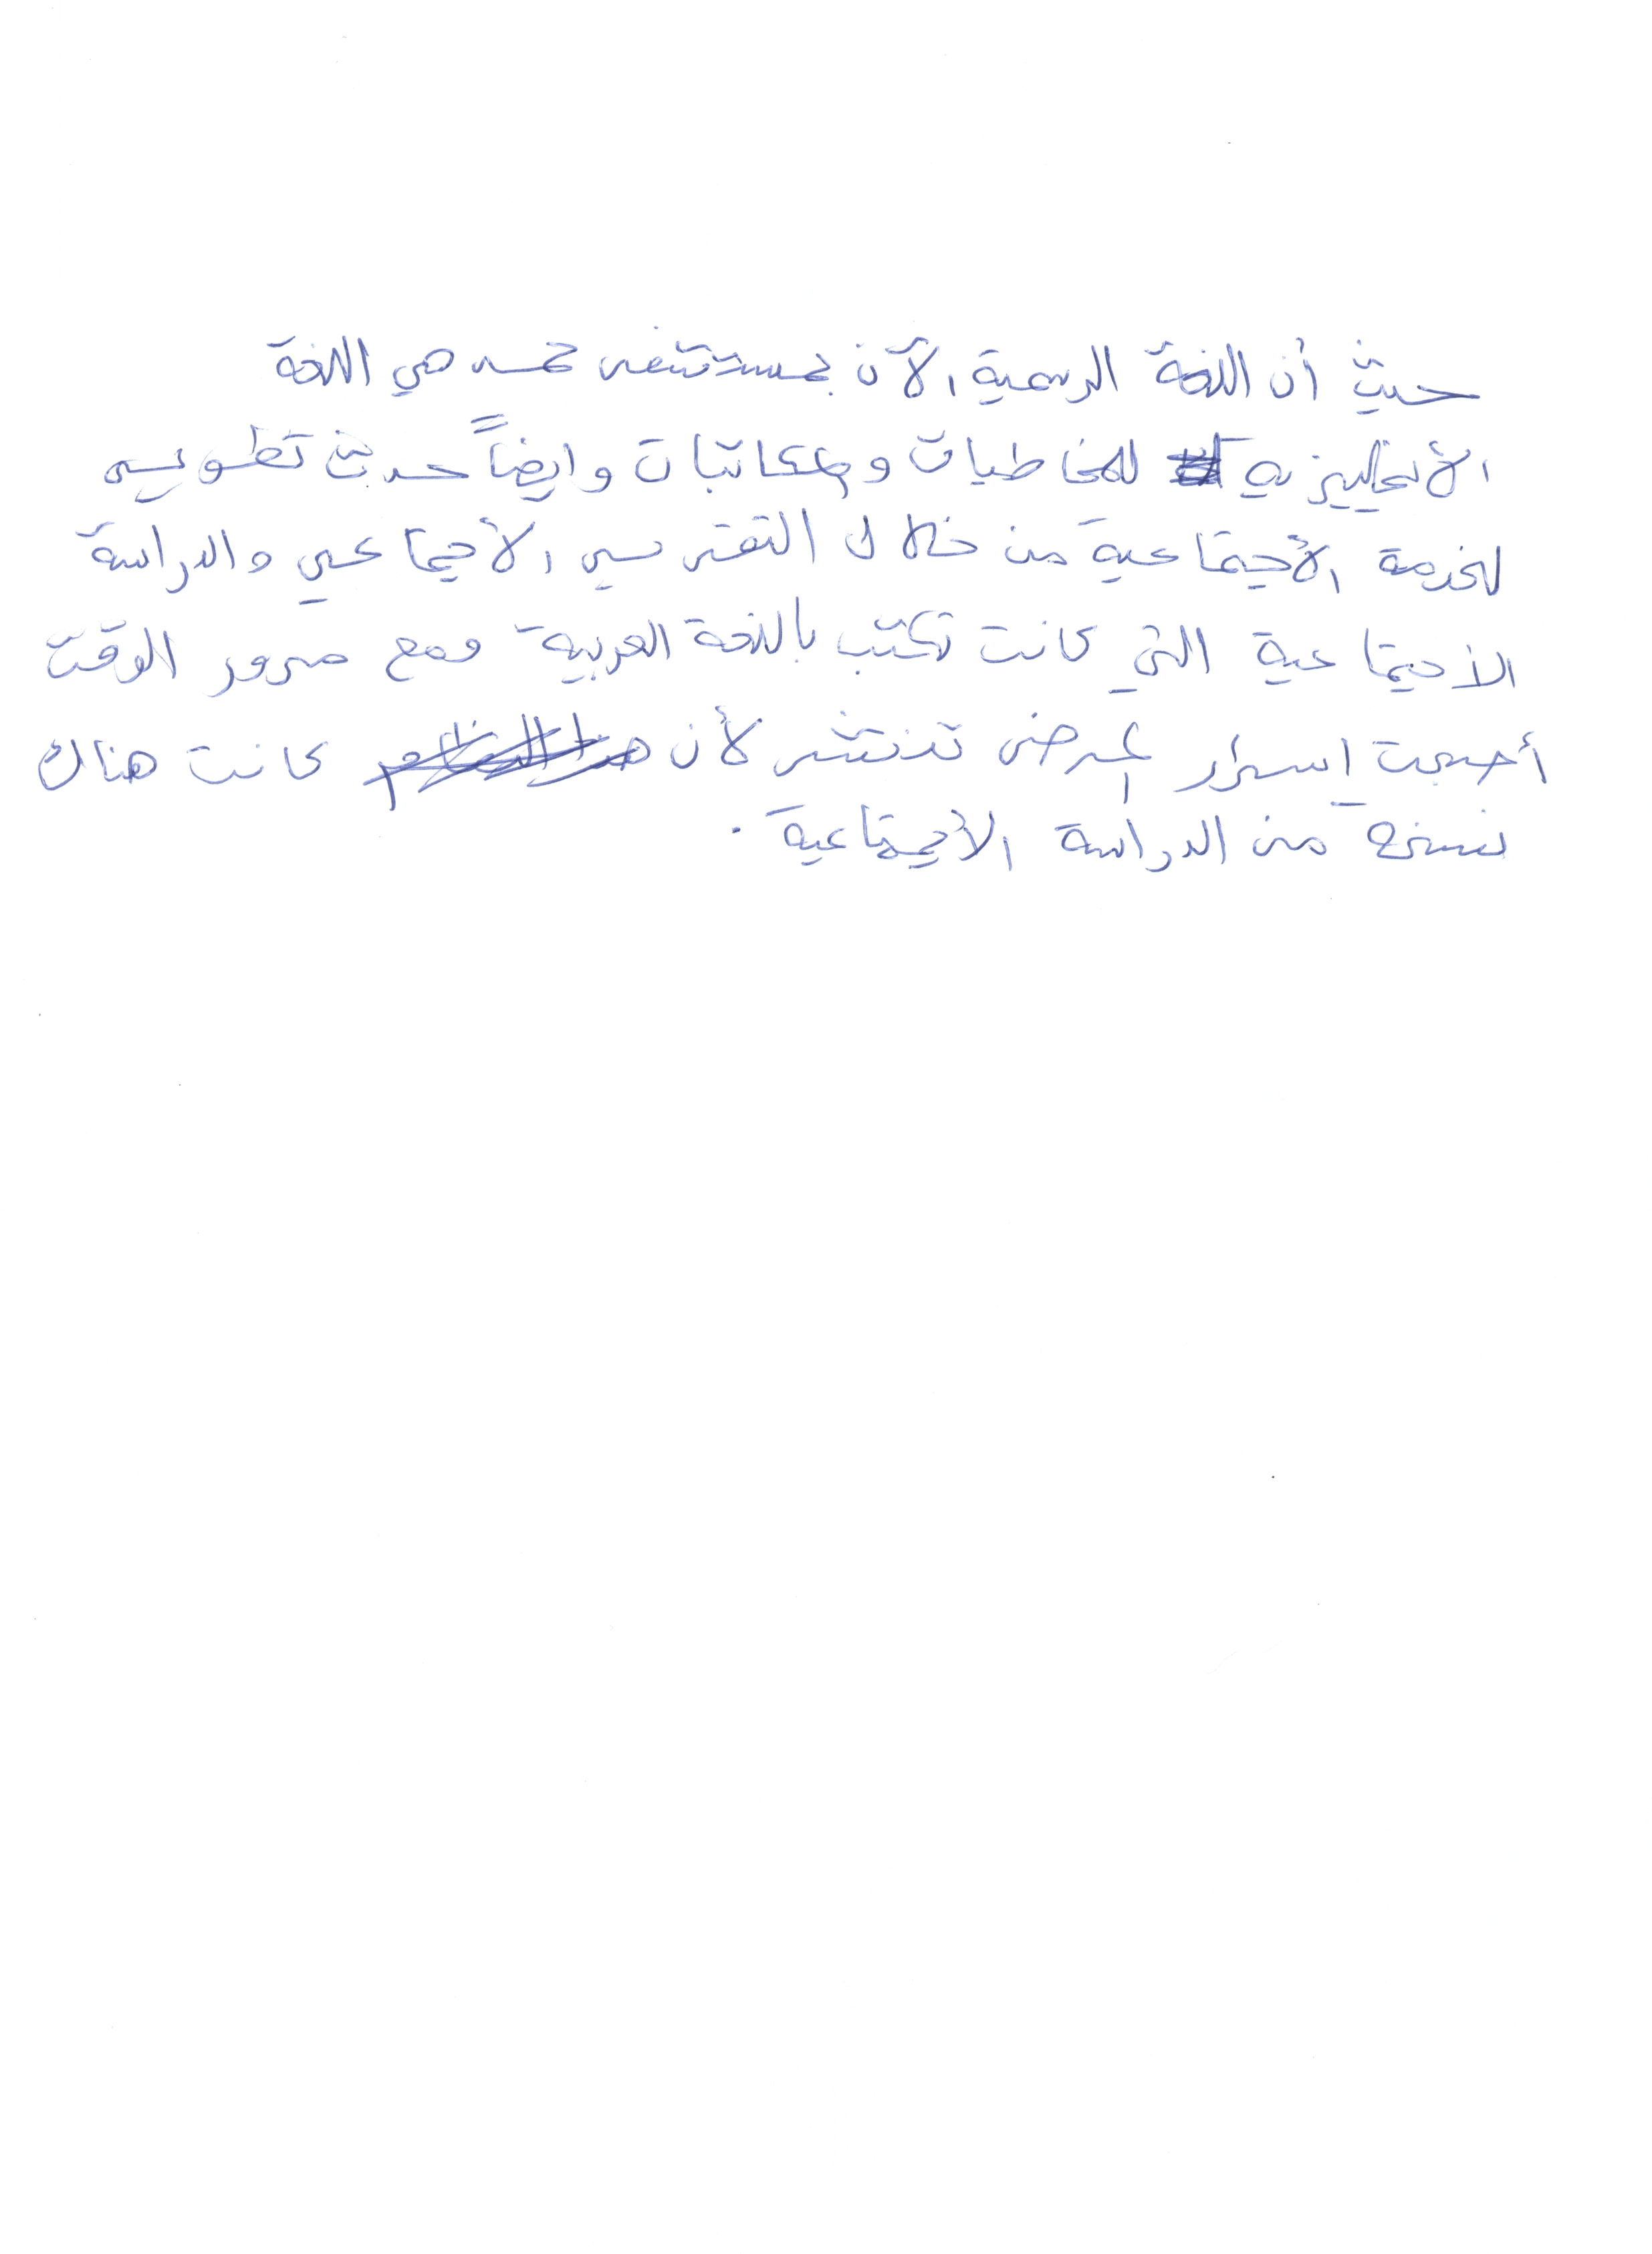 حيث أن اللغة الرسمية الآن بمستشفى تحسه هي اللغة
الأنجليزيه للمخاطبات والمكاتبات وايضاً حدث تطوير
للخدمة الأجتماعية من خلال التقرير الأجتماعي والدراسة
الأجتماعية التي كانت تكتب باللغة العربية ومع مرور الوقت
أصبحت اسرار المرضى تنتشر لأن كانت هناك
نسخه من الدراسة الأجتماعية .